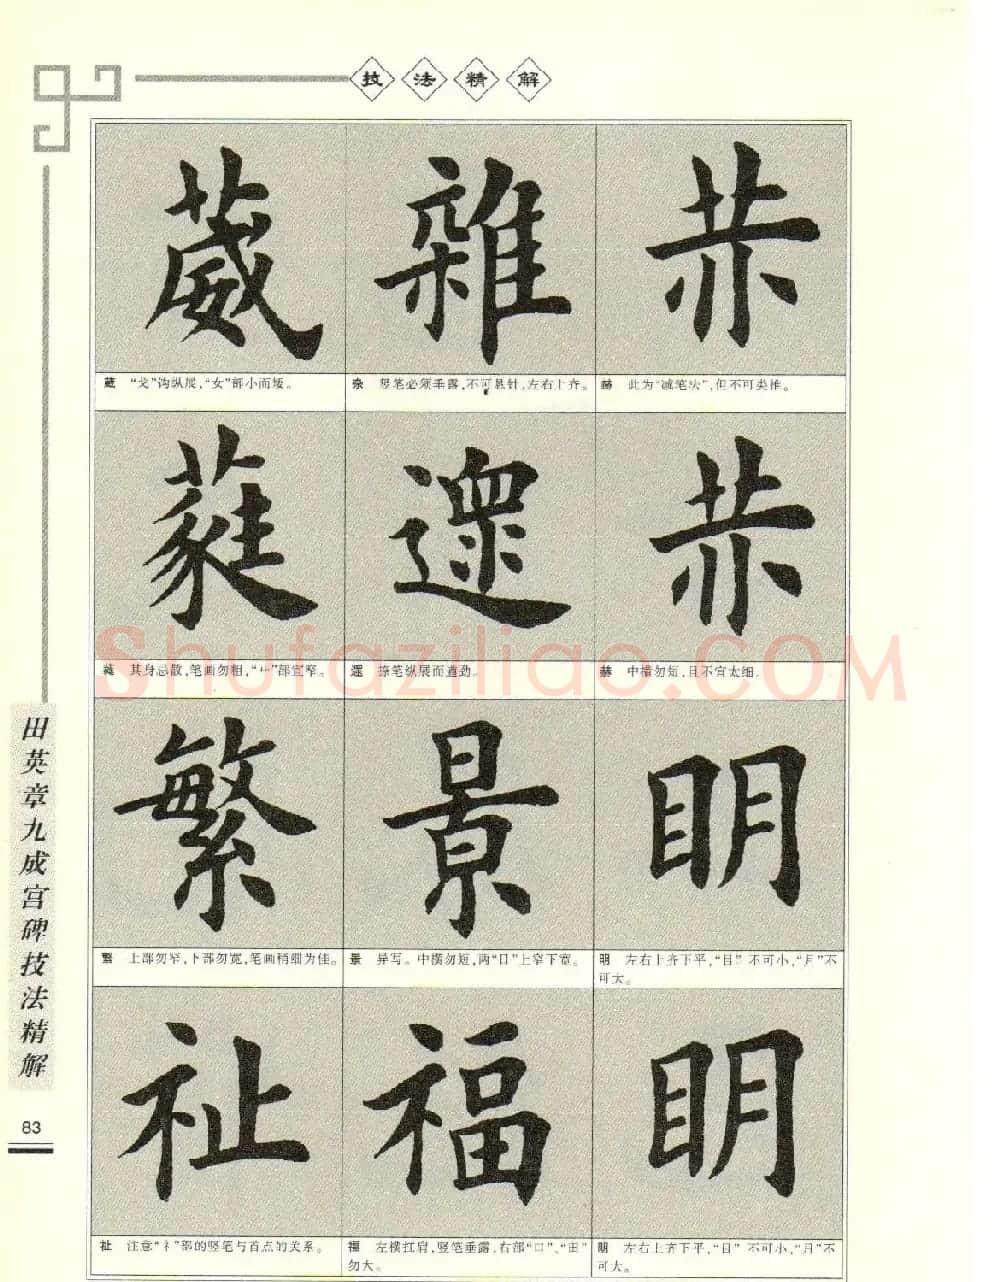 技法精解
葳 雜 赫
葳 “戈”钩纵展，“女”部小而矮。
杂 竖笔必须垂露，不可悬针，左右上齐。
赫 此为“减笔法”，但不可类推。
蕤 遝 赫
蕤 其身忌散，笔画勿粗，“艹”部宜窄。
遝 捺笔纵展而遒劲。
赫 中横勿短，且不宜太细。
繁 景 明
繁 上部勿窄，下部勿宽，笔画稍细为佳。
景 异写。中横勿短，两“日”上窄下宽。
明 左右上齐下平，“目”不可小，“月”不
可大。
祉 福 明
祉 注意“礻”部的竖笔与首点的关系。
福 左横扛肩，竖笔垂露，右部“口”、“田”
勿大。
明 左右上齐下平，“目”不可小，“月”不
可大。
田英章九成宫碑技法精解
83
Shufaziliao.COM